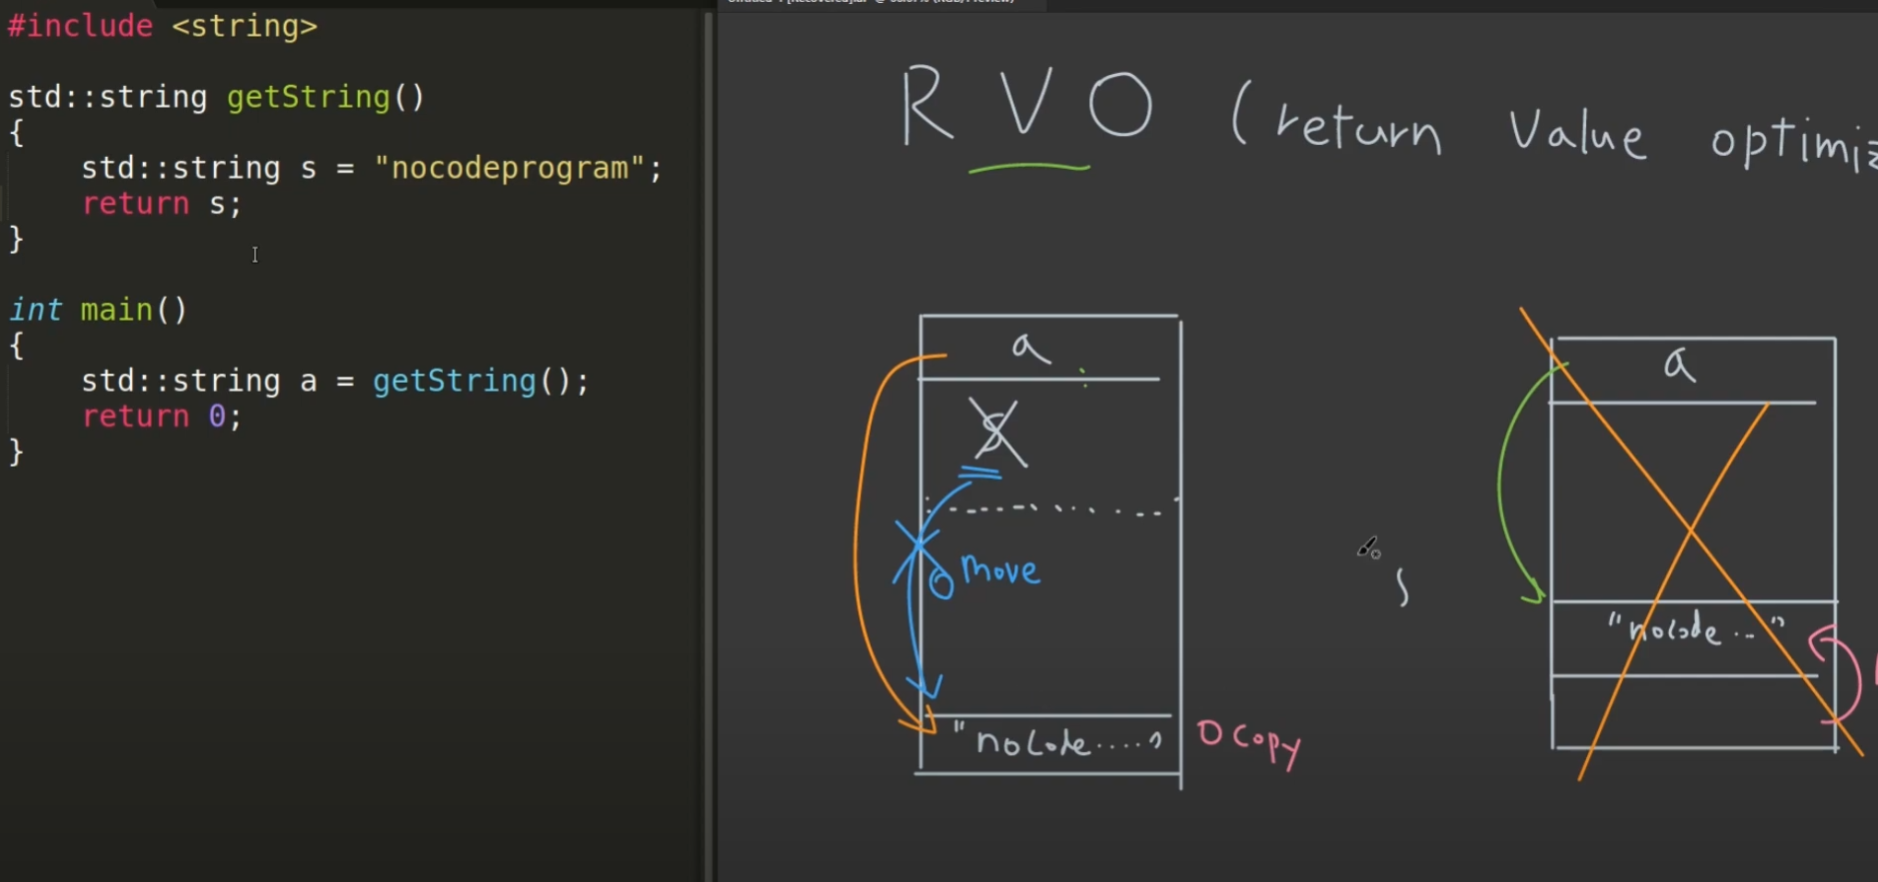 #include <string>
std::string getString()
{
    std::string s = "nocodeprogram";
    return s;
}
int main()
{
    std::string a = getString();
    return 0;
}
RVO (return Value optimiz
a
S
move
"nocode....."
0 copy
s
a
"nocode..."